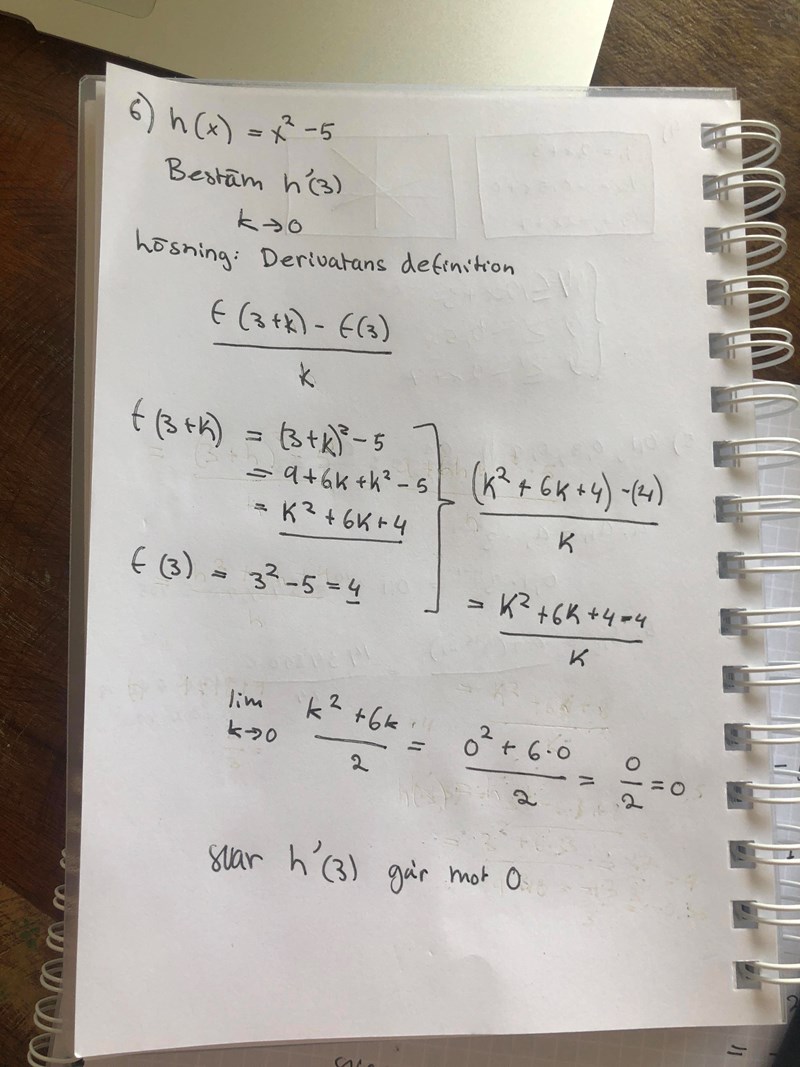 6) h(x) = x² - 5
Bestäm h'(3)
k→0
Lösning: Derivatans definition
f(3+k) - f(3)
k
f(3+k) = (3+k)² - 5
= 9 + 6k + k² - 5
= k² + 6k + 4
f(3) = 3² - 5 = 4
(k² + 6k + 4) - (4)
k
= k² + 6k + 4 - 4
k
lim k→0 k² + 6k / 2 = 0² + 6·0 / 2 = 0/2 = 0
svar h'(3) går mot 0